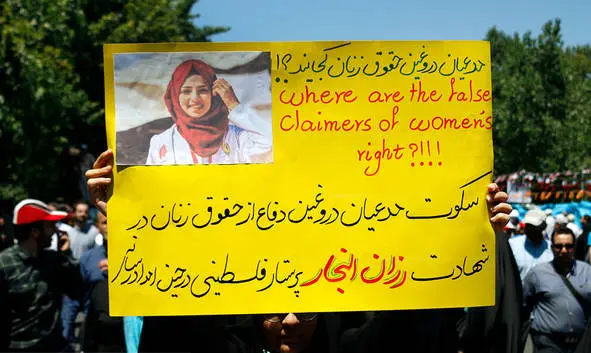 مدعیان دروغین حقوق زنان کجایند؟!!
where are the false
claimers of women's
right?!!!
سکوت مدعیان دروغین دفاع از حقوق زنان در
شهادت رزان النجار پرستار فلسطینی درحین امدادرسانی